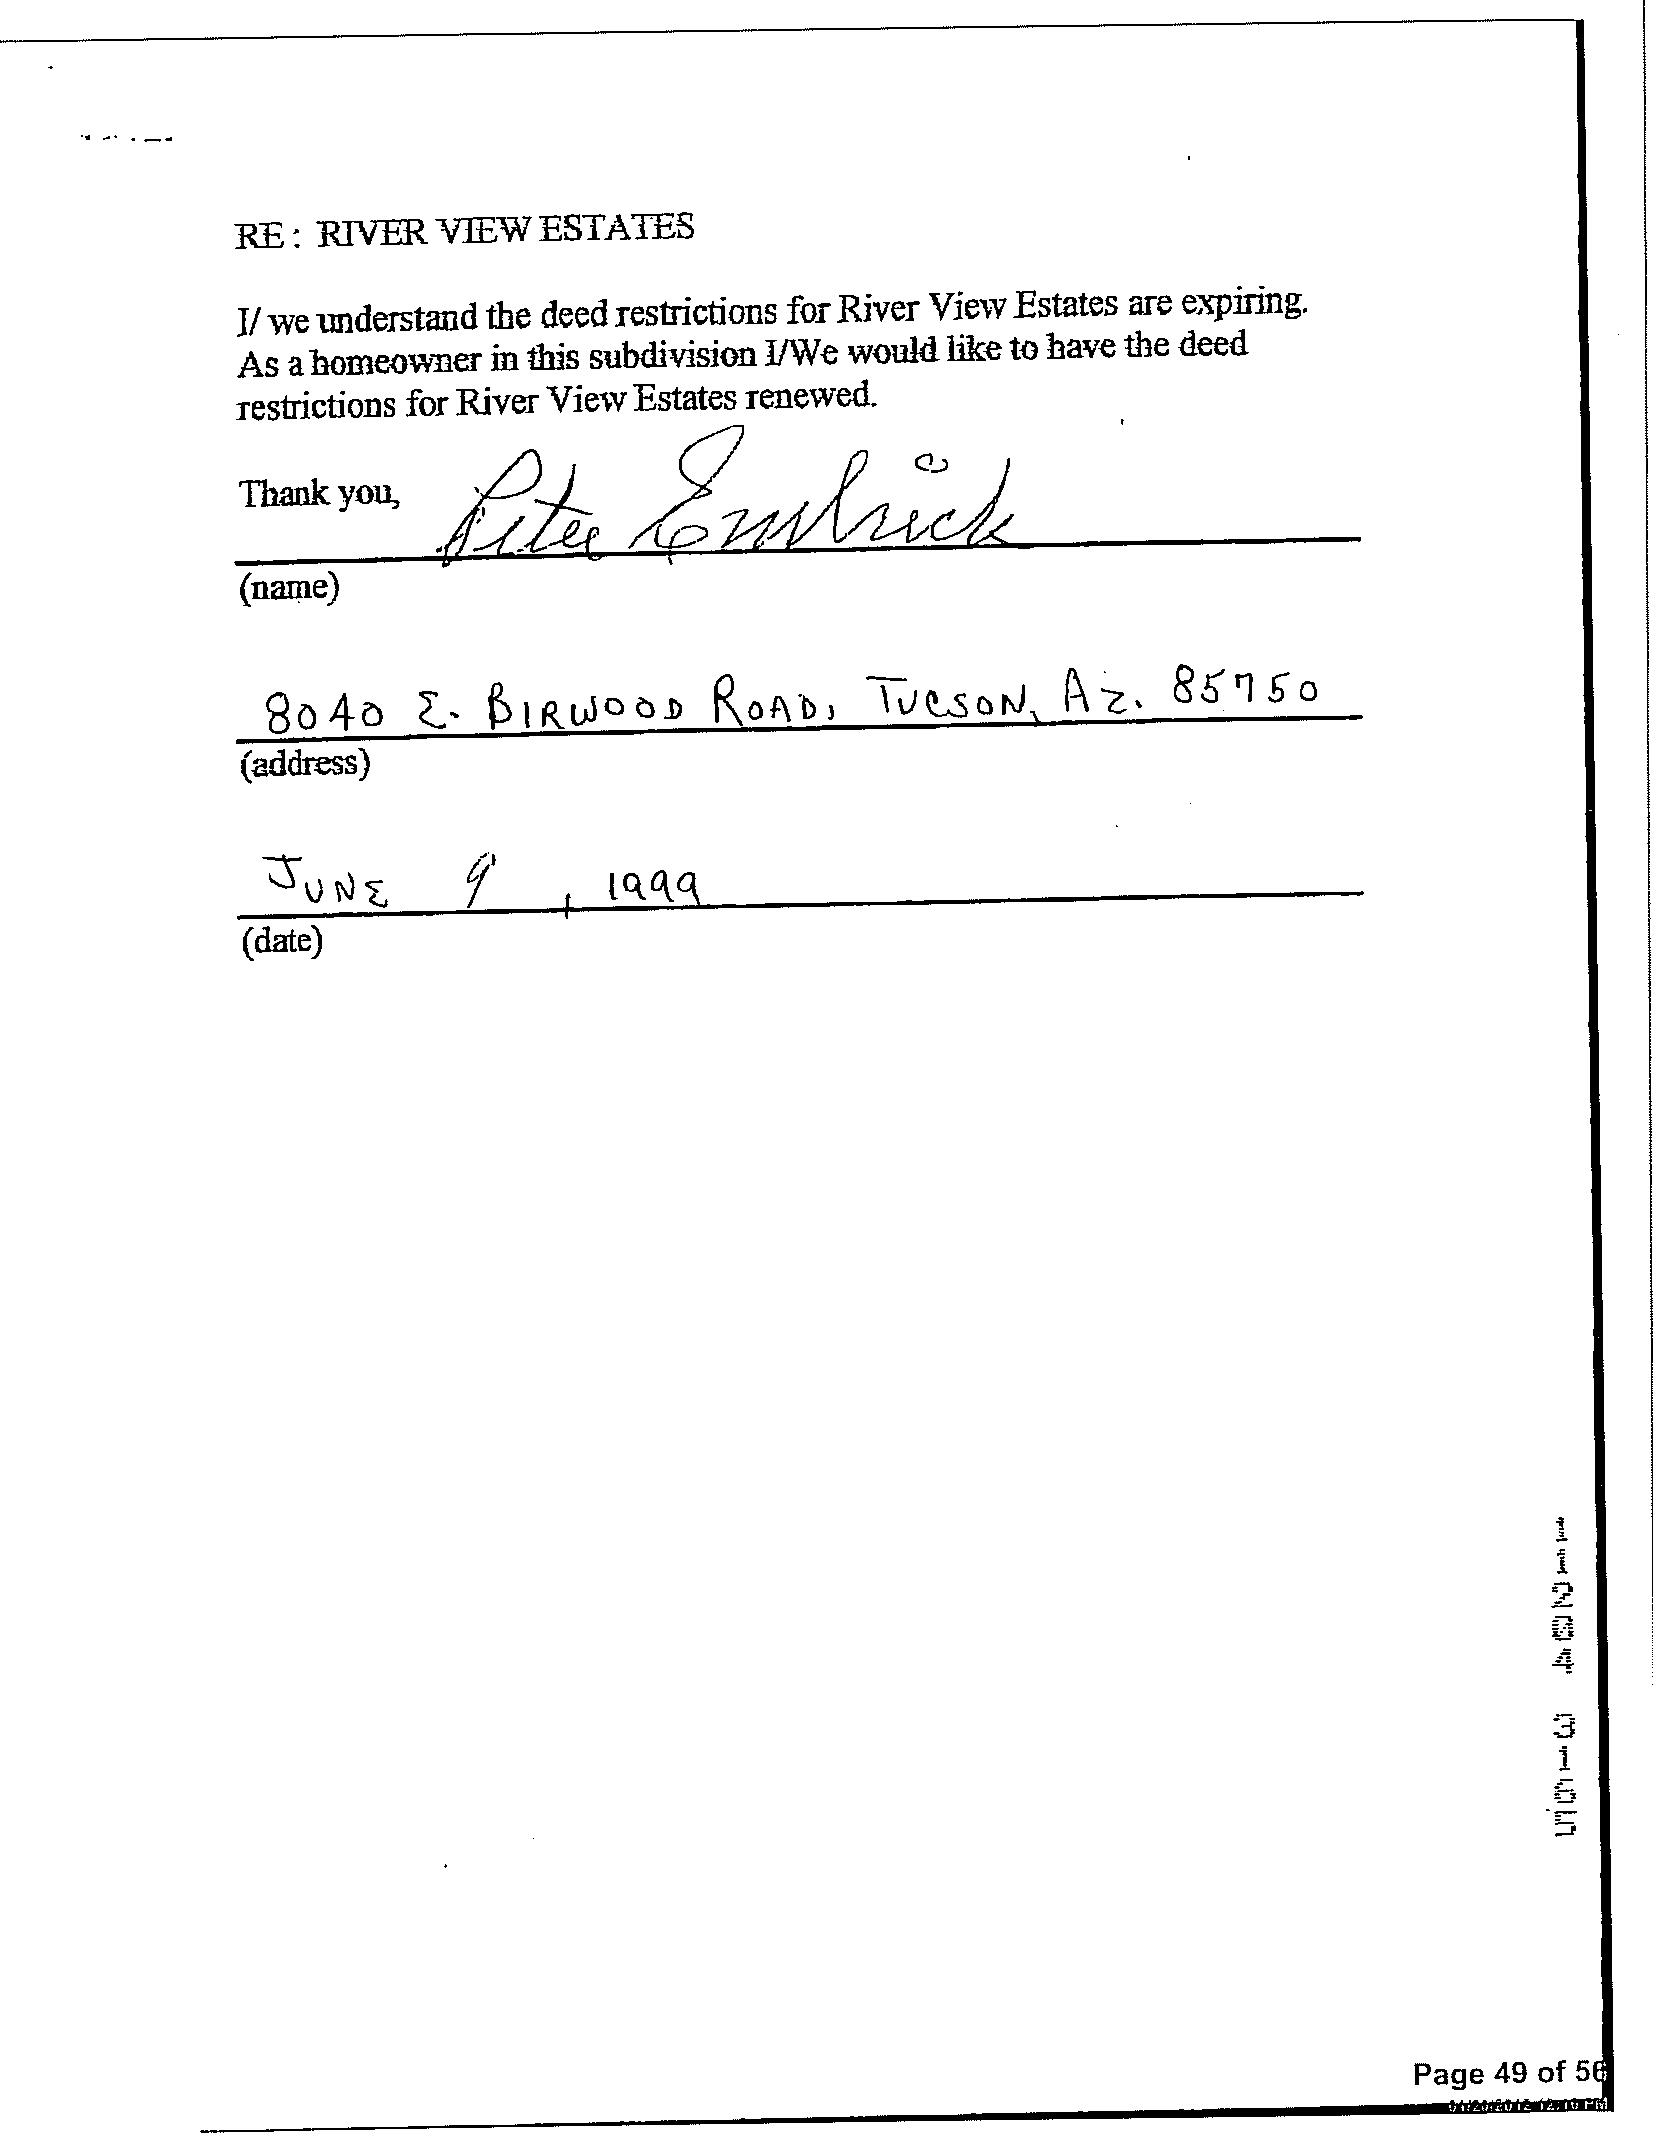 RE: RIVER VIEW ESTATES
I/ we understand the deed restrictions for River View Estates are expiring.
As a homeowner in this subdivision I/We would like to have the deed
restrictions for River View Estates renewed.
Thank you,
Peter Embrick
(name)
8040 E. BIRWOOD ROAD, TUCSON, AZ. 85750
(address)
JUNE 9, 1999
(date)
Page 49 of 56